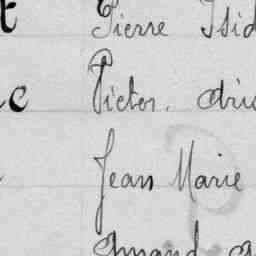 t Pierre Isid
c Victor. Aris
Jean Marie
Amand